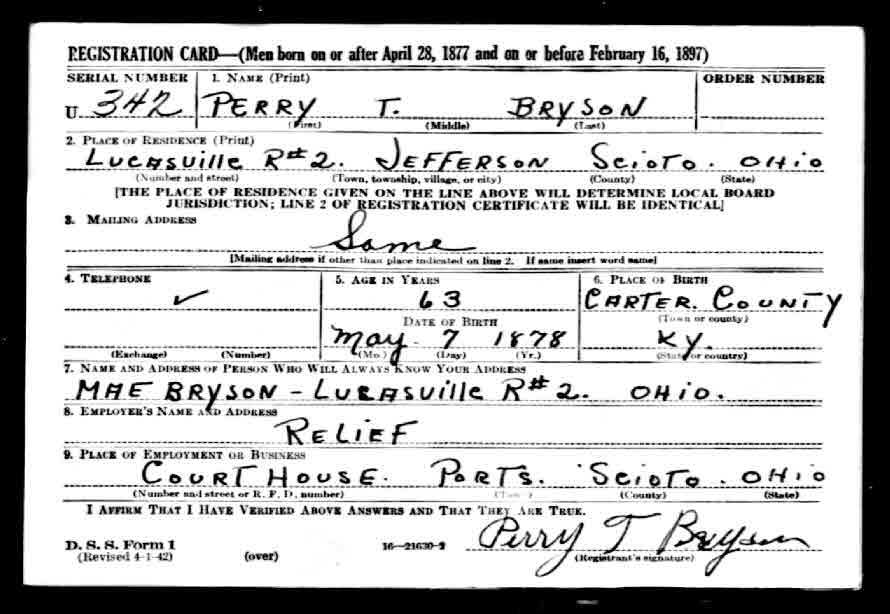 REGISTRATION CARD—(Men born on or after April 28, 1877 and on or before February 16, 1897)
SERIAL NUMBER 1. NAME (Print) ORDER NUMBER
U 342 PERRY T. BRYSON
(First) (Middle) (Last)
2. PLACE OF RESIDENCE (Print)
LUCASVIllE R#2. JEFFERSON SCIOTO. OHIO
(Number and street) (Town, township, village, or city) (County) (State)
[THE PLACE OF RESIDENCE GIVEN ON THE LINE ABOVE WILL DETERMINE LOCAL BOARD
JURISDICTION; LINE 2 OF REGISTRATION CERTIFICATE WILL BE IDENTICAL]
3. MAILING ADDRESS
Same
[Mailing address if other than place indicated on line 2. If same insert word same]
4. TELEPHONE 5. AGE IN YEARS 6. PLACE OF BIRTH
✓ 63 CARTER. COUNTY
DATE OF BIRTH (Town or county)
May. 7 1878 KY.
(Exchange) (Number) (Mo.) (Day) (Yr.) (State or country)
7. NAME AND ADDRESS OF PERSON WHO WILL ALWAYS KNOW YOUR ADDRESS
MAE BRYSON - LUCASVIllE R#2. OHIO.
8. EMPLOYER'S NAME AND ADDRESS
RELIEF
9. PLACE OF EMPLOYMENT OR BUSINESS
COURT HOUSE. PORTS. SCIOTO. OHIO
(Number and street or R. F. D. number) (Town) (County) (State)
I AFFIRM THAT I HAVE VERIFIED ABOVE ANSWERS AND THAT THEY ARE TRUE.
Perry T Bryson
D. S. S. Form 1 16—21630-2
(Revised 4-1-42) (over) (Registrant's signature)